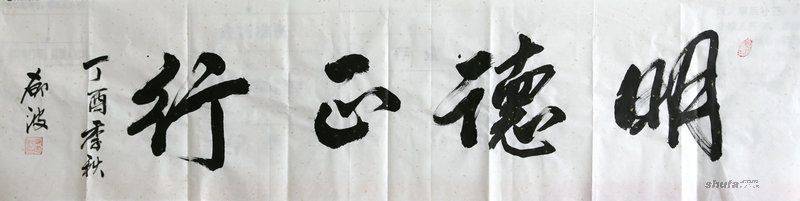 明德正行
丁酉季秋
shufa